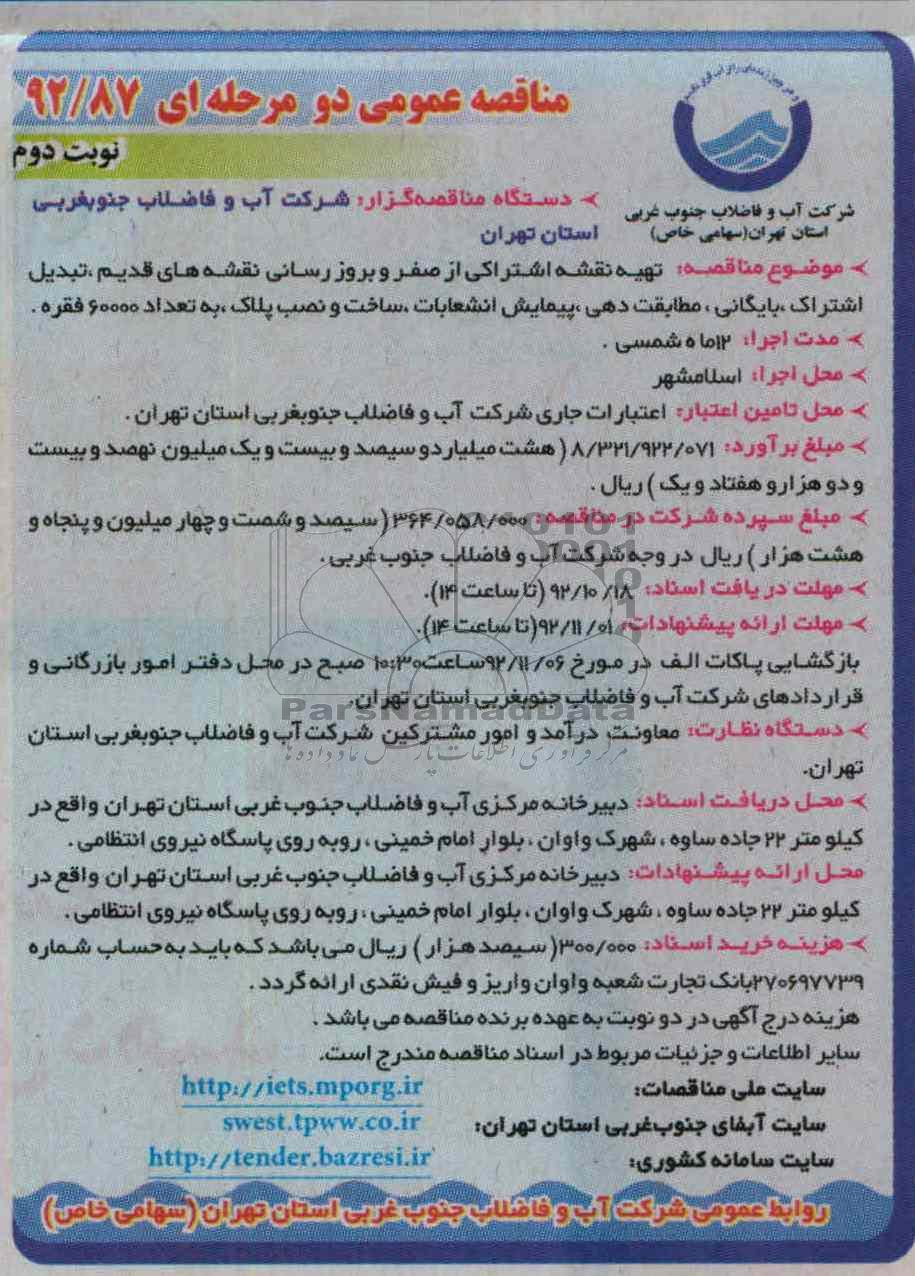 مناقصه عمومی دو مرحله ای ۹۲/۸۷
نوبت دوم
شرکت آب و فاضلاب جنوب غربی
استان تهران(سهامی خاص)
دستگاه مناقصه‌گزار: شرکت آب و فاضلاب جنوبغربی
استان تهران
موضوع مناقصه: تهیه نقشه اشتراکی از صفر و بروز رسانی نقشه های قدیم ،تبدیل
اشتراک ،بایگانی ، مطابقت دهی ،پیمایش انشعابات ،ساخت و نصب پلاک ،به تعداد ۶۰۰۰۰ فقره .
مدت اجرا: ۱۲ماه شمسی .
محل اجرا: اسلامشهر
محل تامین اعتبار: اعتبارات جاری شرکت آب و فاضلاب جنوبغربی استان تهران .
مبلغ برآورد: ۸/۳۲۱/۹۲۲/۰۷۱ ( هشت میلیاردو سیصد و بیست و یک میلیون نهصد و بیست
و دو هزارو هفتاد و یک ) ریال .
مبلغ سپرده شرکت در مناقصه: ۳۶۴/۰۵۸/۰۰۰ ( سیصد و شصت و چهار میلیون و پنجاه و
هشت هزار ) ریال در وجه شرکت آب و فاضلاب جنوب غربی .
مهلت دریافت اسناد: ۹۲/۱۰/۱۸ (تا ساعت ۱۴).
مهلت ارائه پیشنهادات: ۹۲/۱۱/۰۱(تا ساعت ۱۴).
بازگشایی پاکات الف در مورخ ۹۲/۱۱/۰۶ساعت۱۰:۳۰ صبح در محل دفتر امور بازرگانی و
قراردادهای شرکت آب و فاضلاب جنوبغربی استان تهران.
ParsNamadData
دستگاه نظارت: معاونت درآمد و امور مشترکین شرکت آب و فاضلاب جنوبغربی استان
مرکز فرآوری اطلاعات پارس نماد داده ها
تهران.
محل دریافت اسناد: دبیرخانه مرکزی آب و فاضلاب جنوب غربی استان تهران واقع در
کیلو متر ۲۲ جاده ساوه ، شهرک واوان ، بلوار امام خمینی ، روبه روی پاسگاه نیروی انتظامی .
محل ارائه پیشنهادات: دبیرخانه مرکزی آب و فاضلاب جنوب غربی استان تهران واقع در
کیلو متر ۲۲ جاده ساوه ، شهرک واوان ، بلوار امام خمینی ، روبه روی پاسگاه نیروی انتظامی .
هزینه خرید اسناد: ۳۰۰/۰۰۰( سیصد هزار ) ریال می باشد که باید به حساب شماره
۲۷۰۶۹۷۷۳۹بانک تجارت شعبه واوان واریز و فیش نقدی ارائه گردد .
هزینه درج آگهی در دو نوبت به عهده برنده مناقصه می باشد .
سایر اطلاعات و جزئیات مربوط در اسناد مناقصه مندرج است.
سایت ملی مناقصات: http://iets.mporg.ir
سایت آبفای جنوب‌غربی استان تهران: swest.tpww.co.ir
سایت سامانه کشوری: http://tender.bazresi.ir
روابط عمومی شرکت آب و فاضلاب جنوب غربی استان تهران (سهامی خاص)